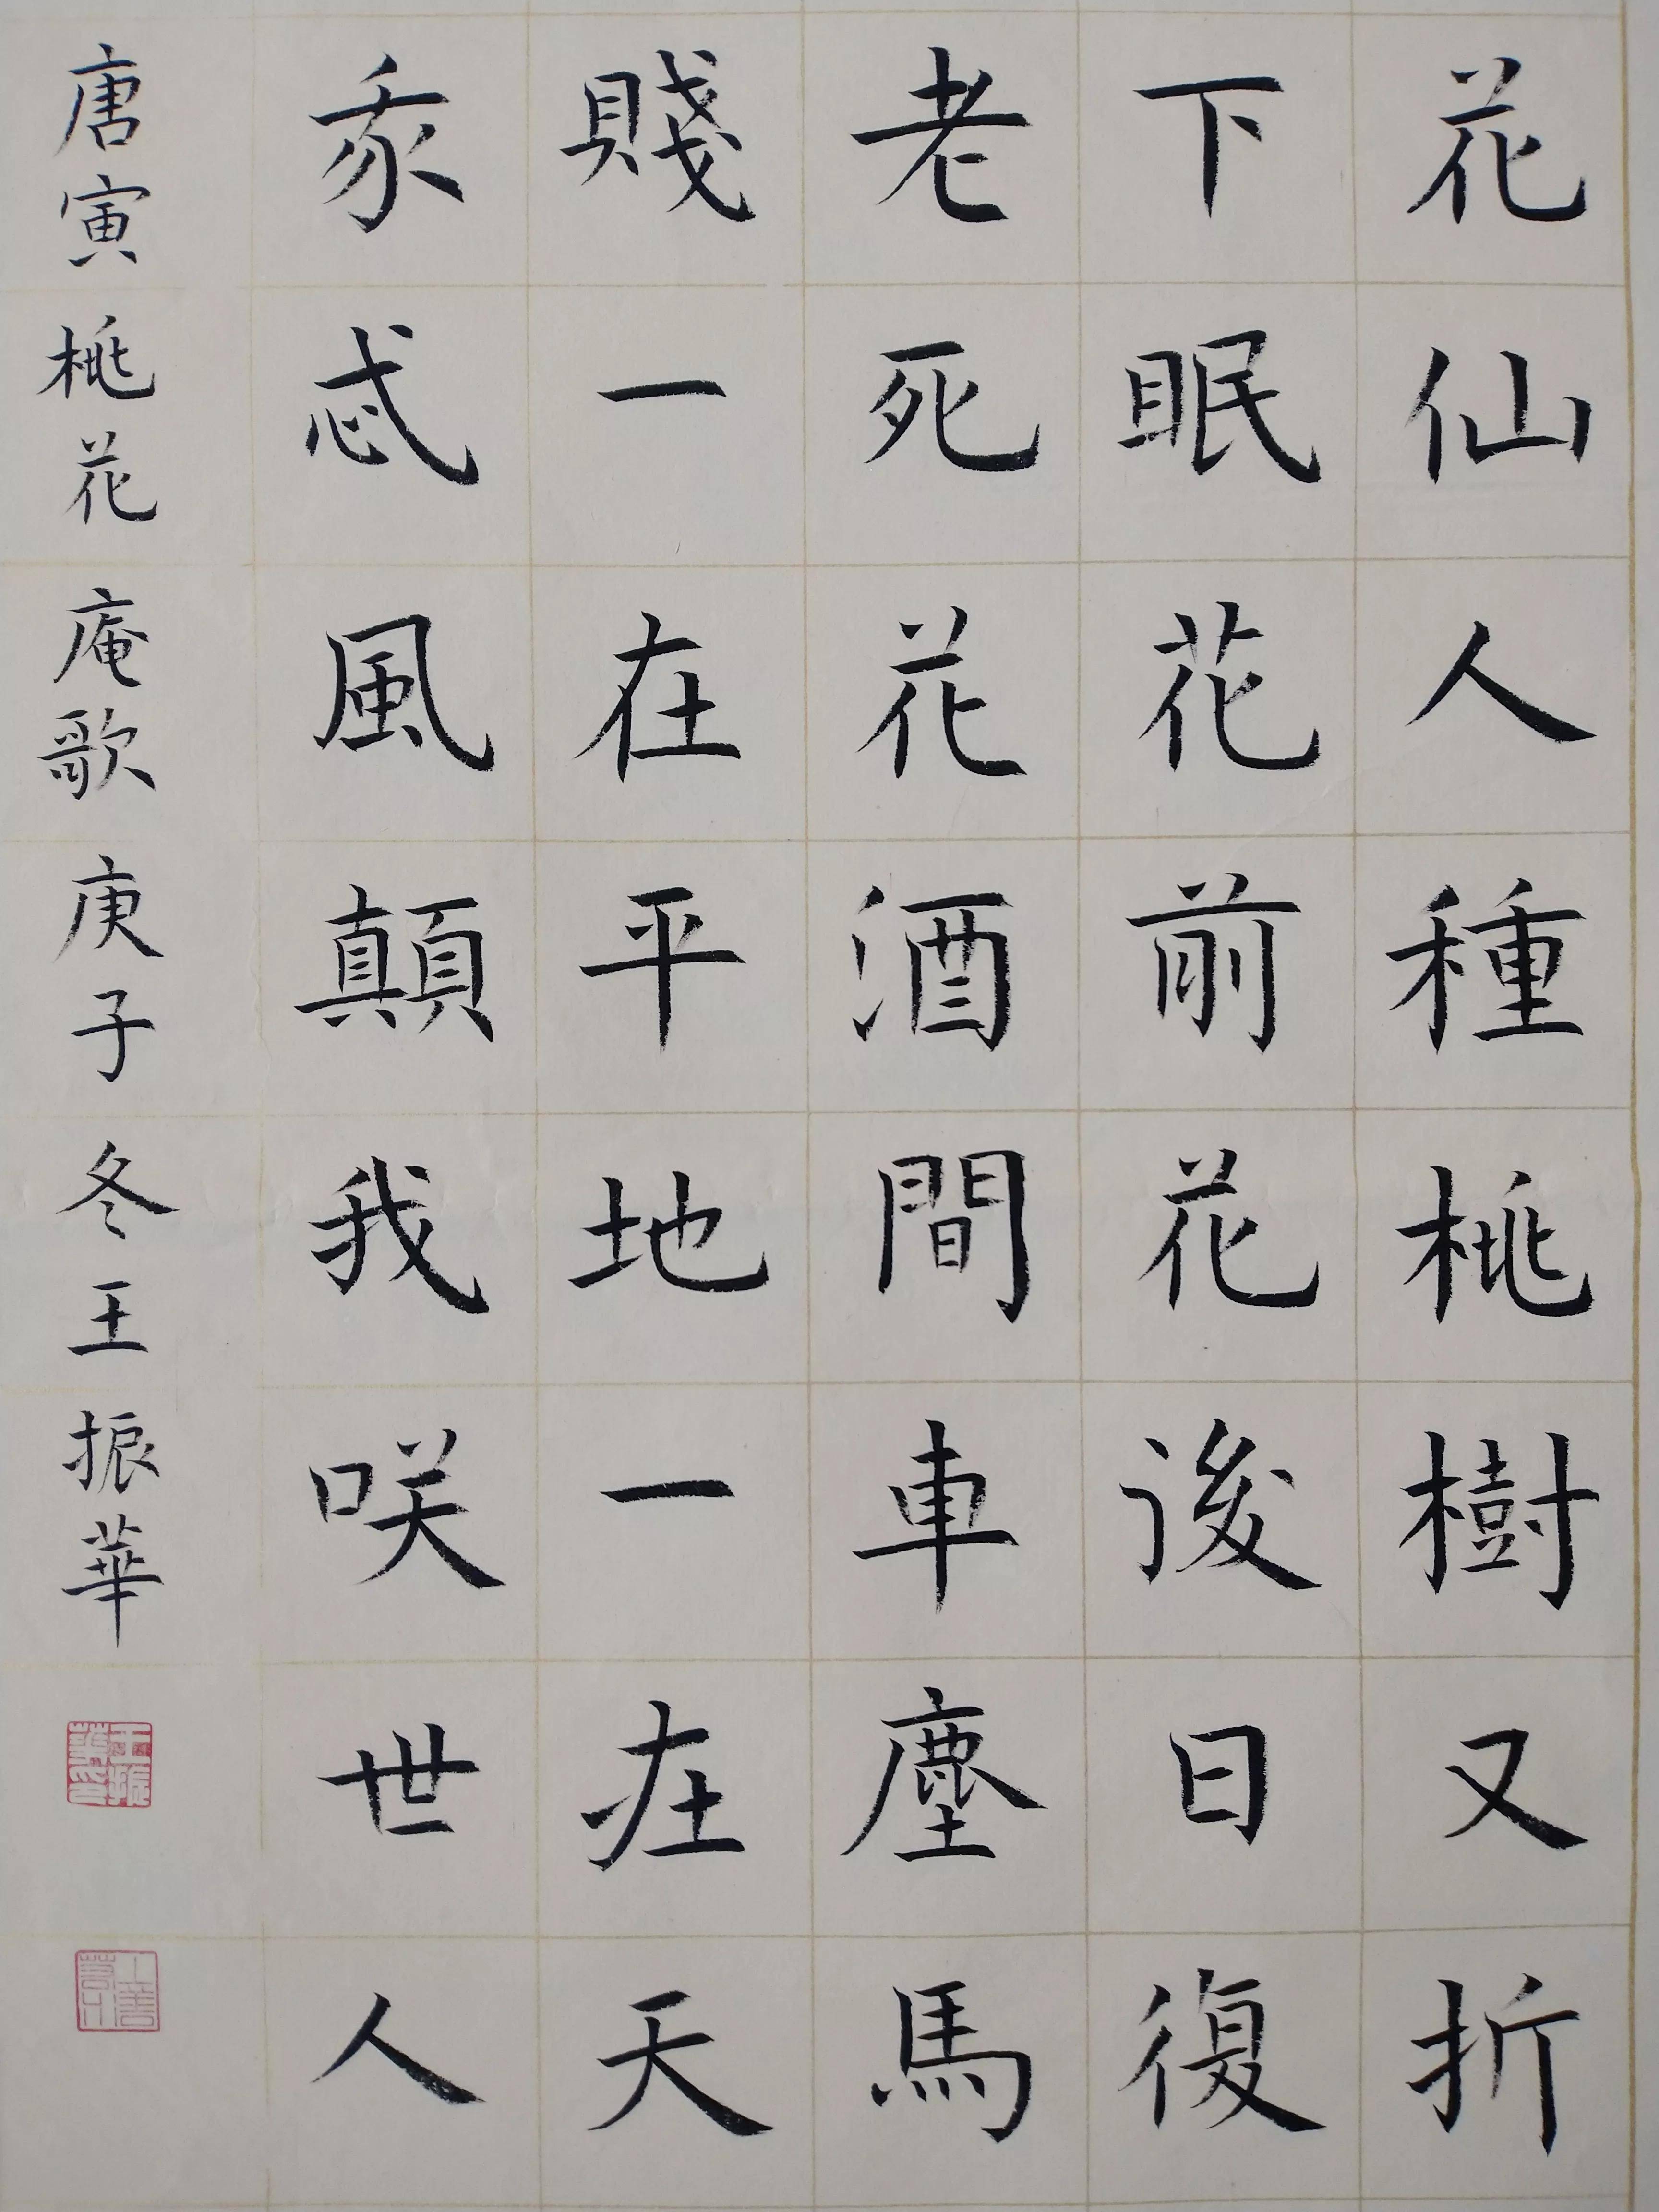 花仙人種桃樹又折
下眠花前花後日復
老死花酒間車塵馬
賤一在平地一在天
我忒風顛我咲世人
唐寅桃花庵歌庚子冬王振華
王振華印
上善若水